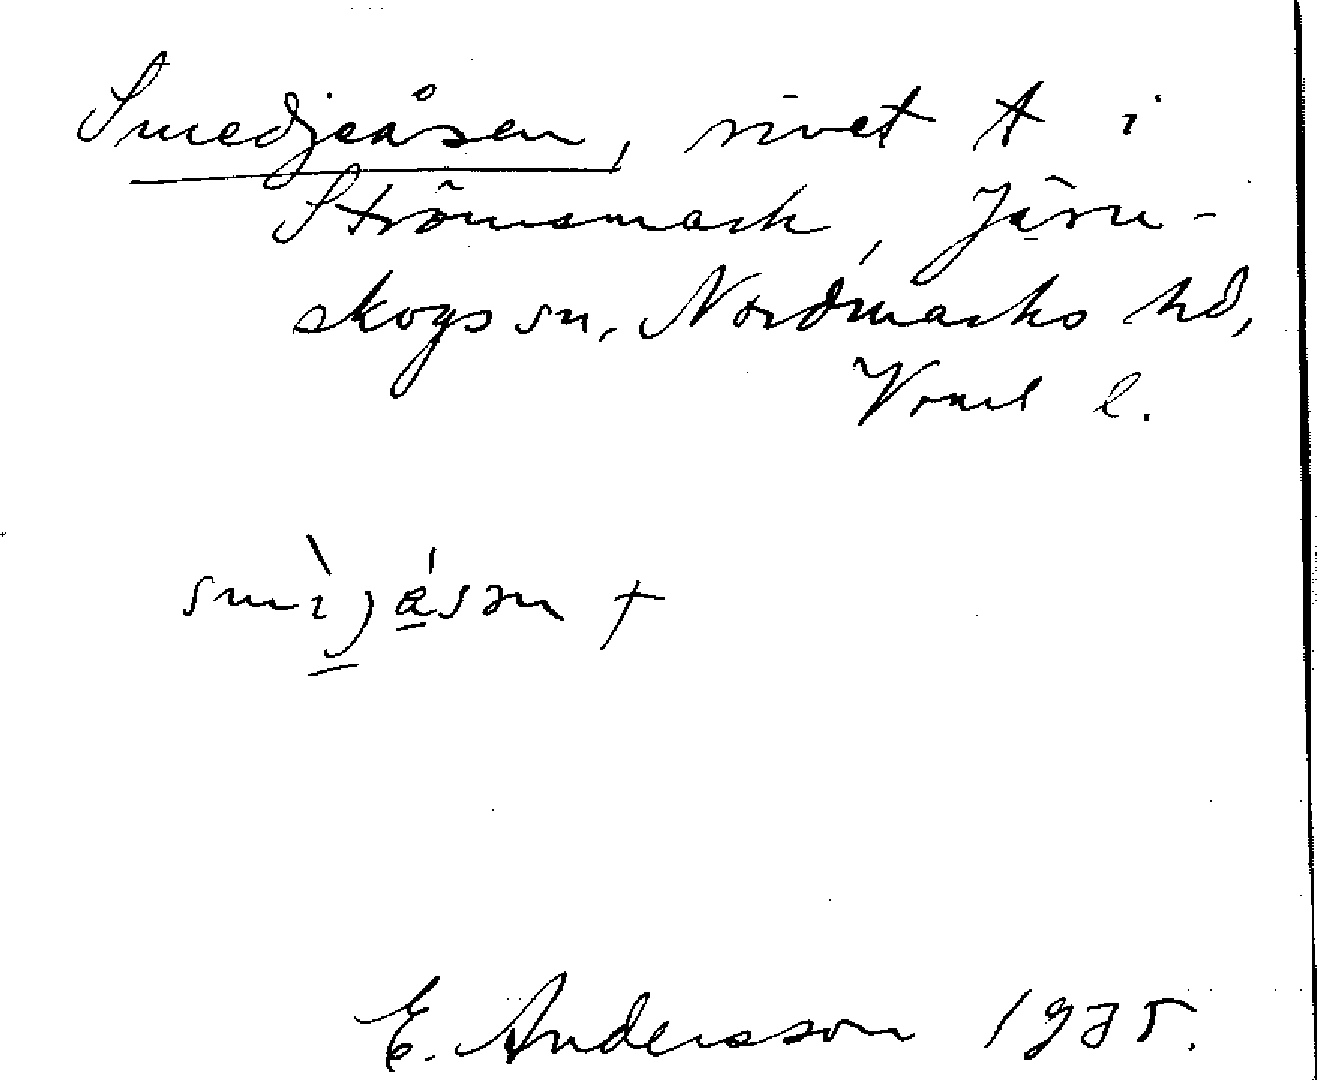 Smedjeåsen, rivet t i
Strömsmark, Järn-
skogs sn, Nordmarks hd,
Vrml l.
smìjásən +
E. Andersson 1935.